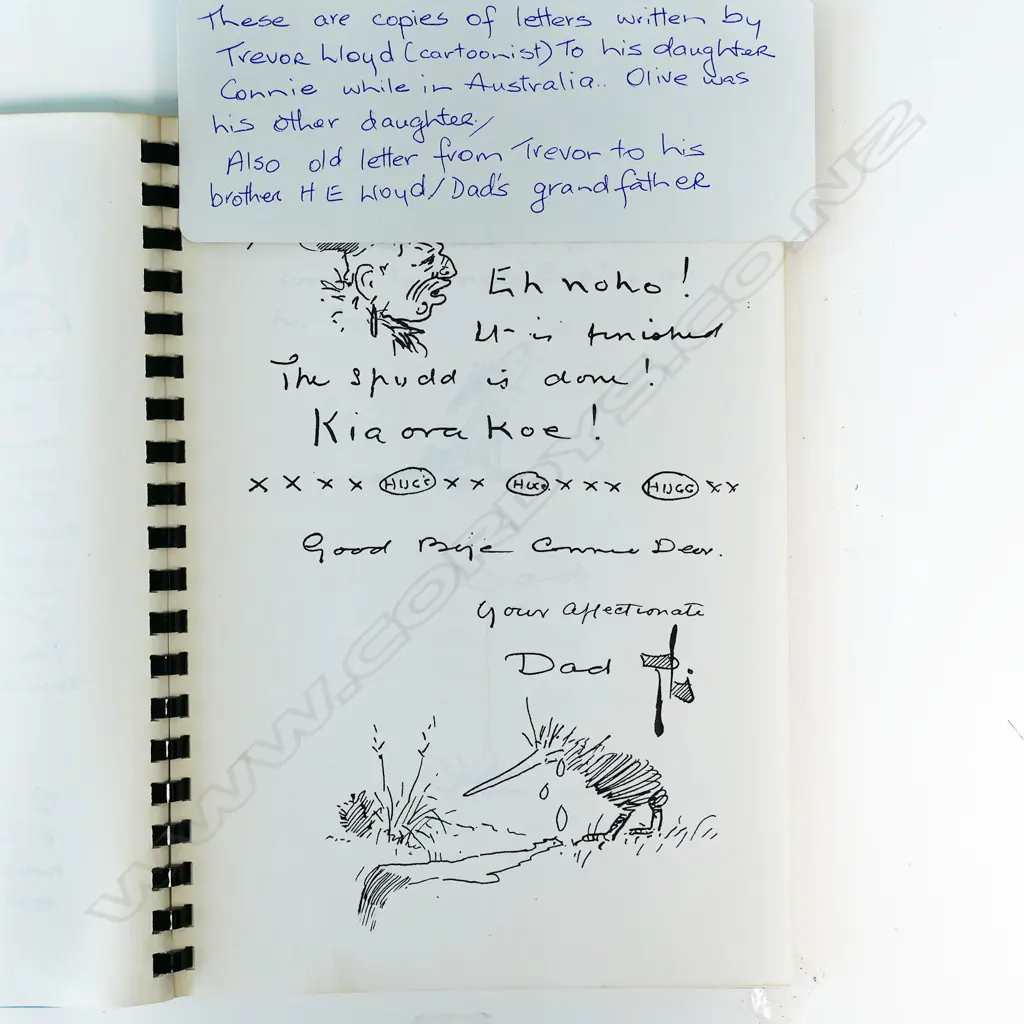 These are copies of letters written by
Trevor Lloyd (cartoonist) To his daughter
Connie while in Australia.. Olive was
his other daughter./
Also old letter from Trevor to his
brother H E Lloyd/Dad's grandfather
Eh noho!
It is finished
The spudd is done!
Kia ora Koe!
x x x x HUGG x x HUGG x x x HUGG x x
Good Bye Connie Dear.
Your affectionate
Dad
WWW.CORDYS.CO.NZ